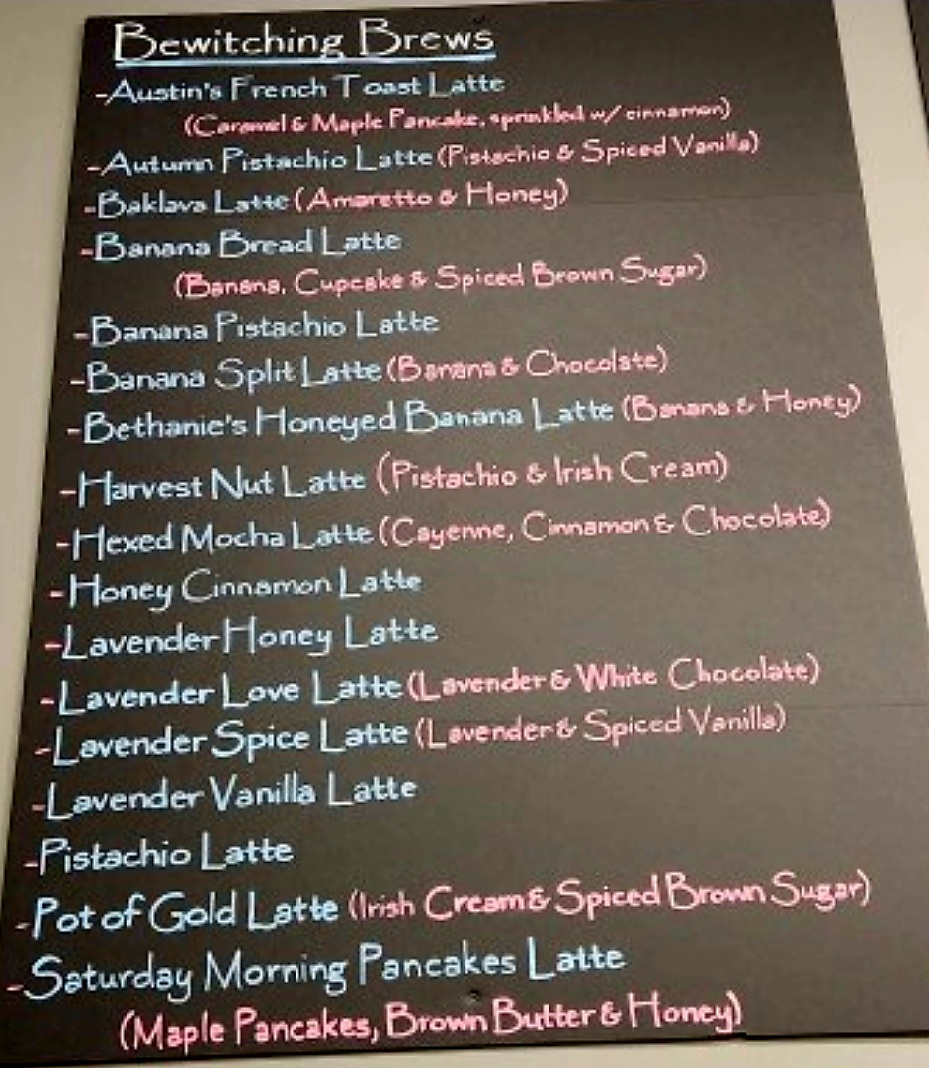 Bewitching Brews
-Austin's French Toast Latte
(Caramel & Maple Pancake, sprinkled w/ cinnamon)
-Autumn Pistachio Latte (Pistachio & Spiced Vanilla)
-Baklava Latte (Amaretto & Honey)
-Banana Bread Latte
(Banana, Cupcake & Spiced Brown Sugar)
-Banana Pistachio Latte
-Banana Split Latte (Banana & Chocolate)
-Bethanie's Honeyed Banana Latte (Banana & Honey)
-Harvest Nut Latte (Pistachio & Irish Cream)
-Hexed Mocha Latte (Cayenne, Cinnamon & Chocolate)
-Honey Cinnamon Latte
-Lavender Honey Latte
-Lavender Love Latte (Lavender & White Chocolate)
-Lavender Spice Latte (Lavender & Spiced Vanilla)
-Lavender Vanilla Latte
-Pistachio Latte
-Pot of Gold Latte (Irish Cream & Spiced Brown Sugar)
-Saturday Morning Pancakes Latte
(Maple Pancakes, Brown Butter & Honey)